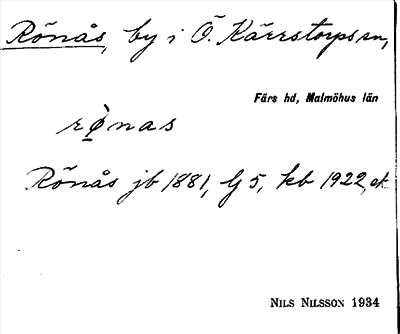 Rönås, by i Ö. Kärrstorps sn,
Färs hd, Malmöhus län
rø̠nas
Rönås jb 1881, G 5, kb 1922, ek
NILS NILSSON 1934